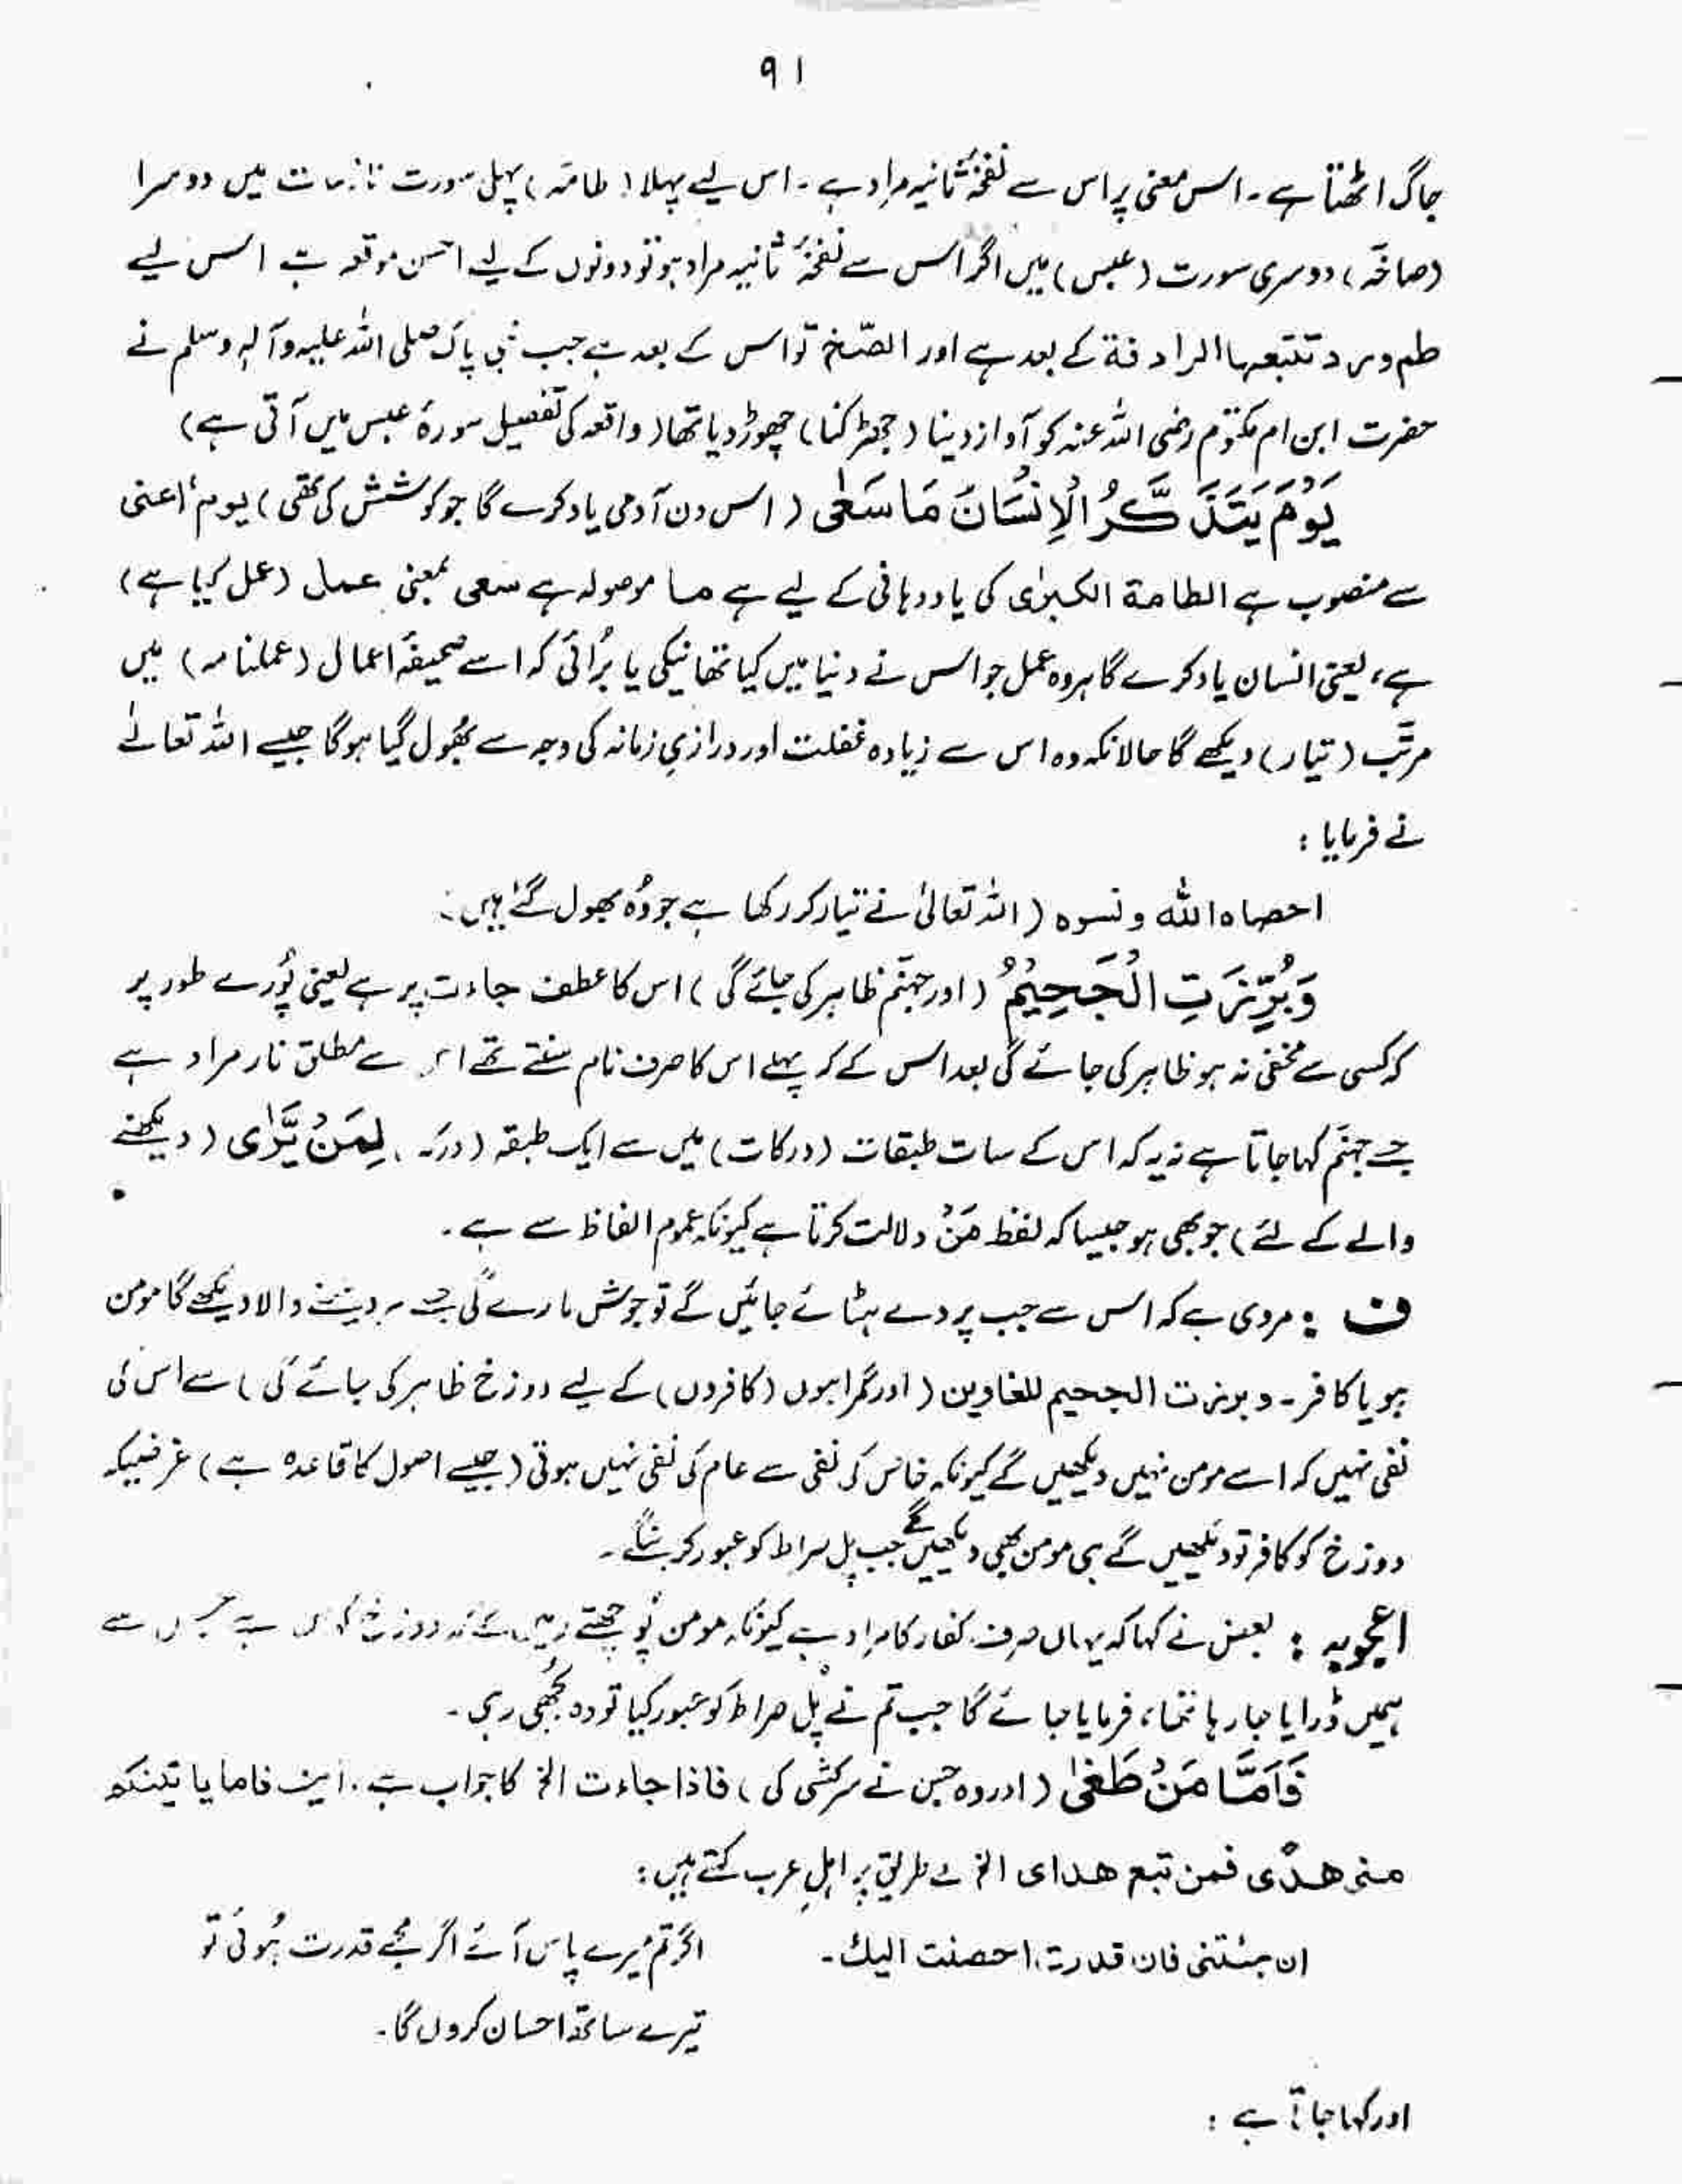 ۹۱
جاگ اٹھتا ہے۔ اس معنی پر اس سے نفخۂ ثانیہ مراد ہے۔ اس لیے پہلا (طامہ) پہلی سورت نازعات میں دوسرا
(صاخّہ) دوسری سورت (عبس) میں اگر اس سے نفخۂ ثانیہ مراد ہو تو دونوں کے لیے احسن موقعہ ہے اس لیے
طم ورد تتبعہا الرادفۃ کے بعد ہے اور الصّخ تو اس کے بعد ہے جب نبی پاک صلی اللہ علیہ وآلہٖ وسلم نے
حضرت ابن ام مکتوم رضی اللہ عنہ کو آواز دینا (جھڑکنا) چھوڑ دیا تھا (واقعہ کی تفصیل سورۂ عبس میں آتی ہے)
يَوْمَ يَتَذَكَّرُ الْاِنْسَانُ مَا سَعٰى (اس دن آدمی یاد کرے گا جو کوشش کی تھی) یوم اعنی
سے منصوب ہے الطامۃ الکبرٰی کی یاد دہانی کے لیے ہے ما موصولہ ہے سعی بمعنی عمل (عمل کیا ہے)
ہے، یعنی انسان یاد کرے گا ہر وہ عمل جو اس نے دنیا میں کیا تھا نیکی یا بُرائی کہ اسے صحیفۂ اعمال (عملنامہ) میں
مرتّب (تیار) دیکھے گا حالانکہ وہ اس سے زیادہ غفلت اور درازیِ زمانہ کی وجہ سے بھول گیا ہوگا جیسے اللہ تعالےٰ
نے فرمایا :
احصاہ اللہ ونسوہ (اللہ تعالیٰ نے تیار کر رکھا ہے جو وُہ بھول گئے ہیں)
وَبُرِّزَتِ الْجَحِيْمُ (اور جہنّم ظاہر کی جائے گی) اس کا عطف جاءت پر ہے یعنی پُورے طور پر
کہ کسی سے مخفی نہ ہو ظاہر کی جائے گی بعد اس کے کہ پہلے اس کا صرف نام سنتے تھے اس سے مطلق نار مراد ہے
جسے جہنّم کہا جاتا ہے نہ یہ کہ اس کے سات طبقات (درکات) میں سے ایک طبقہ (درکہ) لِمَنْ يَّرٰى (دیکھنے
والے کے لئے) جو بھی ہو جیسا کہ لفظ مَنْ دلالت کرتا ہے کیونکہ عموم الفاظ سے ہے۔
ف : مروی ہے کہ اس سے جب پردے ہٹائے جائیں گے تو جوش مارے گی جسے ہر دیکھنے والا دیکھے گا مومن
ہو یا کافر۔ وبرزت الجحیم للغاوین (اور گمراہوں (کافروں) کے لیے دوزخ ظاہر کی جائے گی) سے اس کی
نفی نہیں کہ اسے مومن نہیں دیکھیں گے کیونکہ خاص کی نفی سے عام کی نفی نہیں ہوتی (جیسے اصول کا قاعدہ ہے) غرضیکہ
دوزخ کو کافر تو دیکھیں گے ہی مومن بھی دیکھیں گے جب پل سراط کو عبور کریں گے۔
اعجوبہ : بعض نے کہا کہ یہاں صرف کفار کا مراد ہے کیونکہ مومن پُوچھتے رہیں گے کہ دوزخ کہاں ہے جس سے
ہمیں ڈرایا جا رہا تھا، فرمایا جائے گا جب تم نے پُل صراط کو عبور کیا تو وہ بُجھی رہی۔
فَاَمَّا مَنْ طَغٰى (اور وہ جس نے سرکشی کی) فاذا جاءت الخ کا جواب ہے۔ یہ فاما یاتینکم
منی ھدًی فمن تبع ھدای الخ کے طریق پر اہلِ عرب کہتے ہیں :
ان جئتنی فان قدرت احصنت الیك۔ اگر تم میرے پاس آئے اگر مجھے قدرت ہُوئی تو
تیرے ساتھ احسان کروں گا۔
اور کہا جاتا ہے :